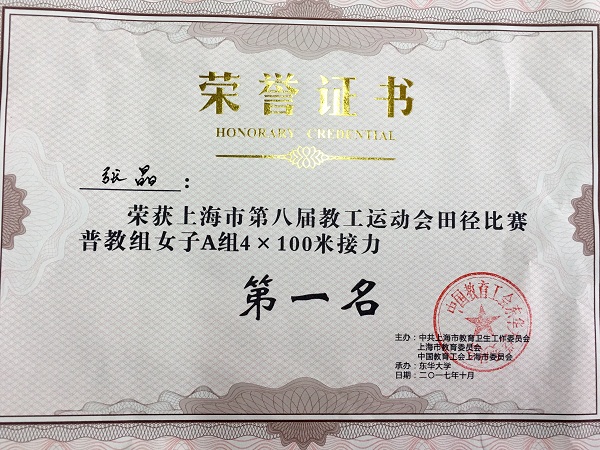 荣誉证书
HONORARY CREDENTIAL
张晶：
荣获上海市第八届教工运动会田径比赛
普教组女子A组4×100米接力
第一名
主办：中共上海市教育卫生工作委员会
上海市教育委员会
中国教育工会上海市委员会
承办：东华大学
日期：二〇一七年十月
中国教育工会东华